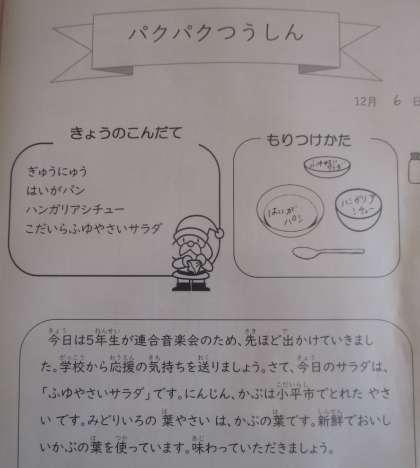 パクパクつうしん
12月 6 日
きょうのこんだて
ぎゅうにゅう
はいがパン
ハンガリアシチュー
こだいらふゆやさいサラダ
もりつけかた
はいが
パン
ハンガリア
シチュー
今日は5年生が連合音楽会のため、先ほど出かけていきまし
た。学校から応援の気持ちを送りましょう。さて、今日のサラダは、
「ふゆやさいサラダ」です。にんじん、かぶは小平市でとれた やさ
い です。みどりいろの 葉やさい は、かぶの葉です。新鮮でおいし
いかぶの葉を使っています。味わっていただきましょう。